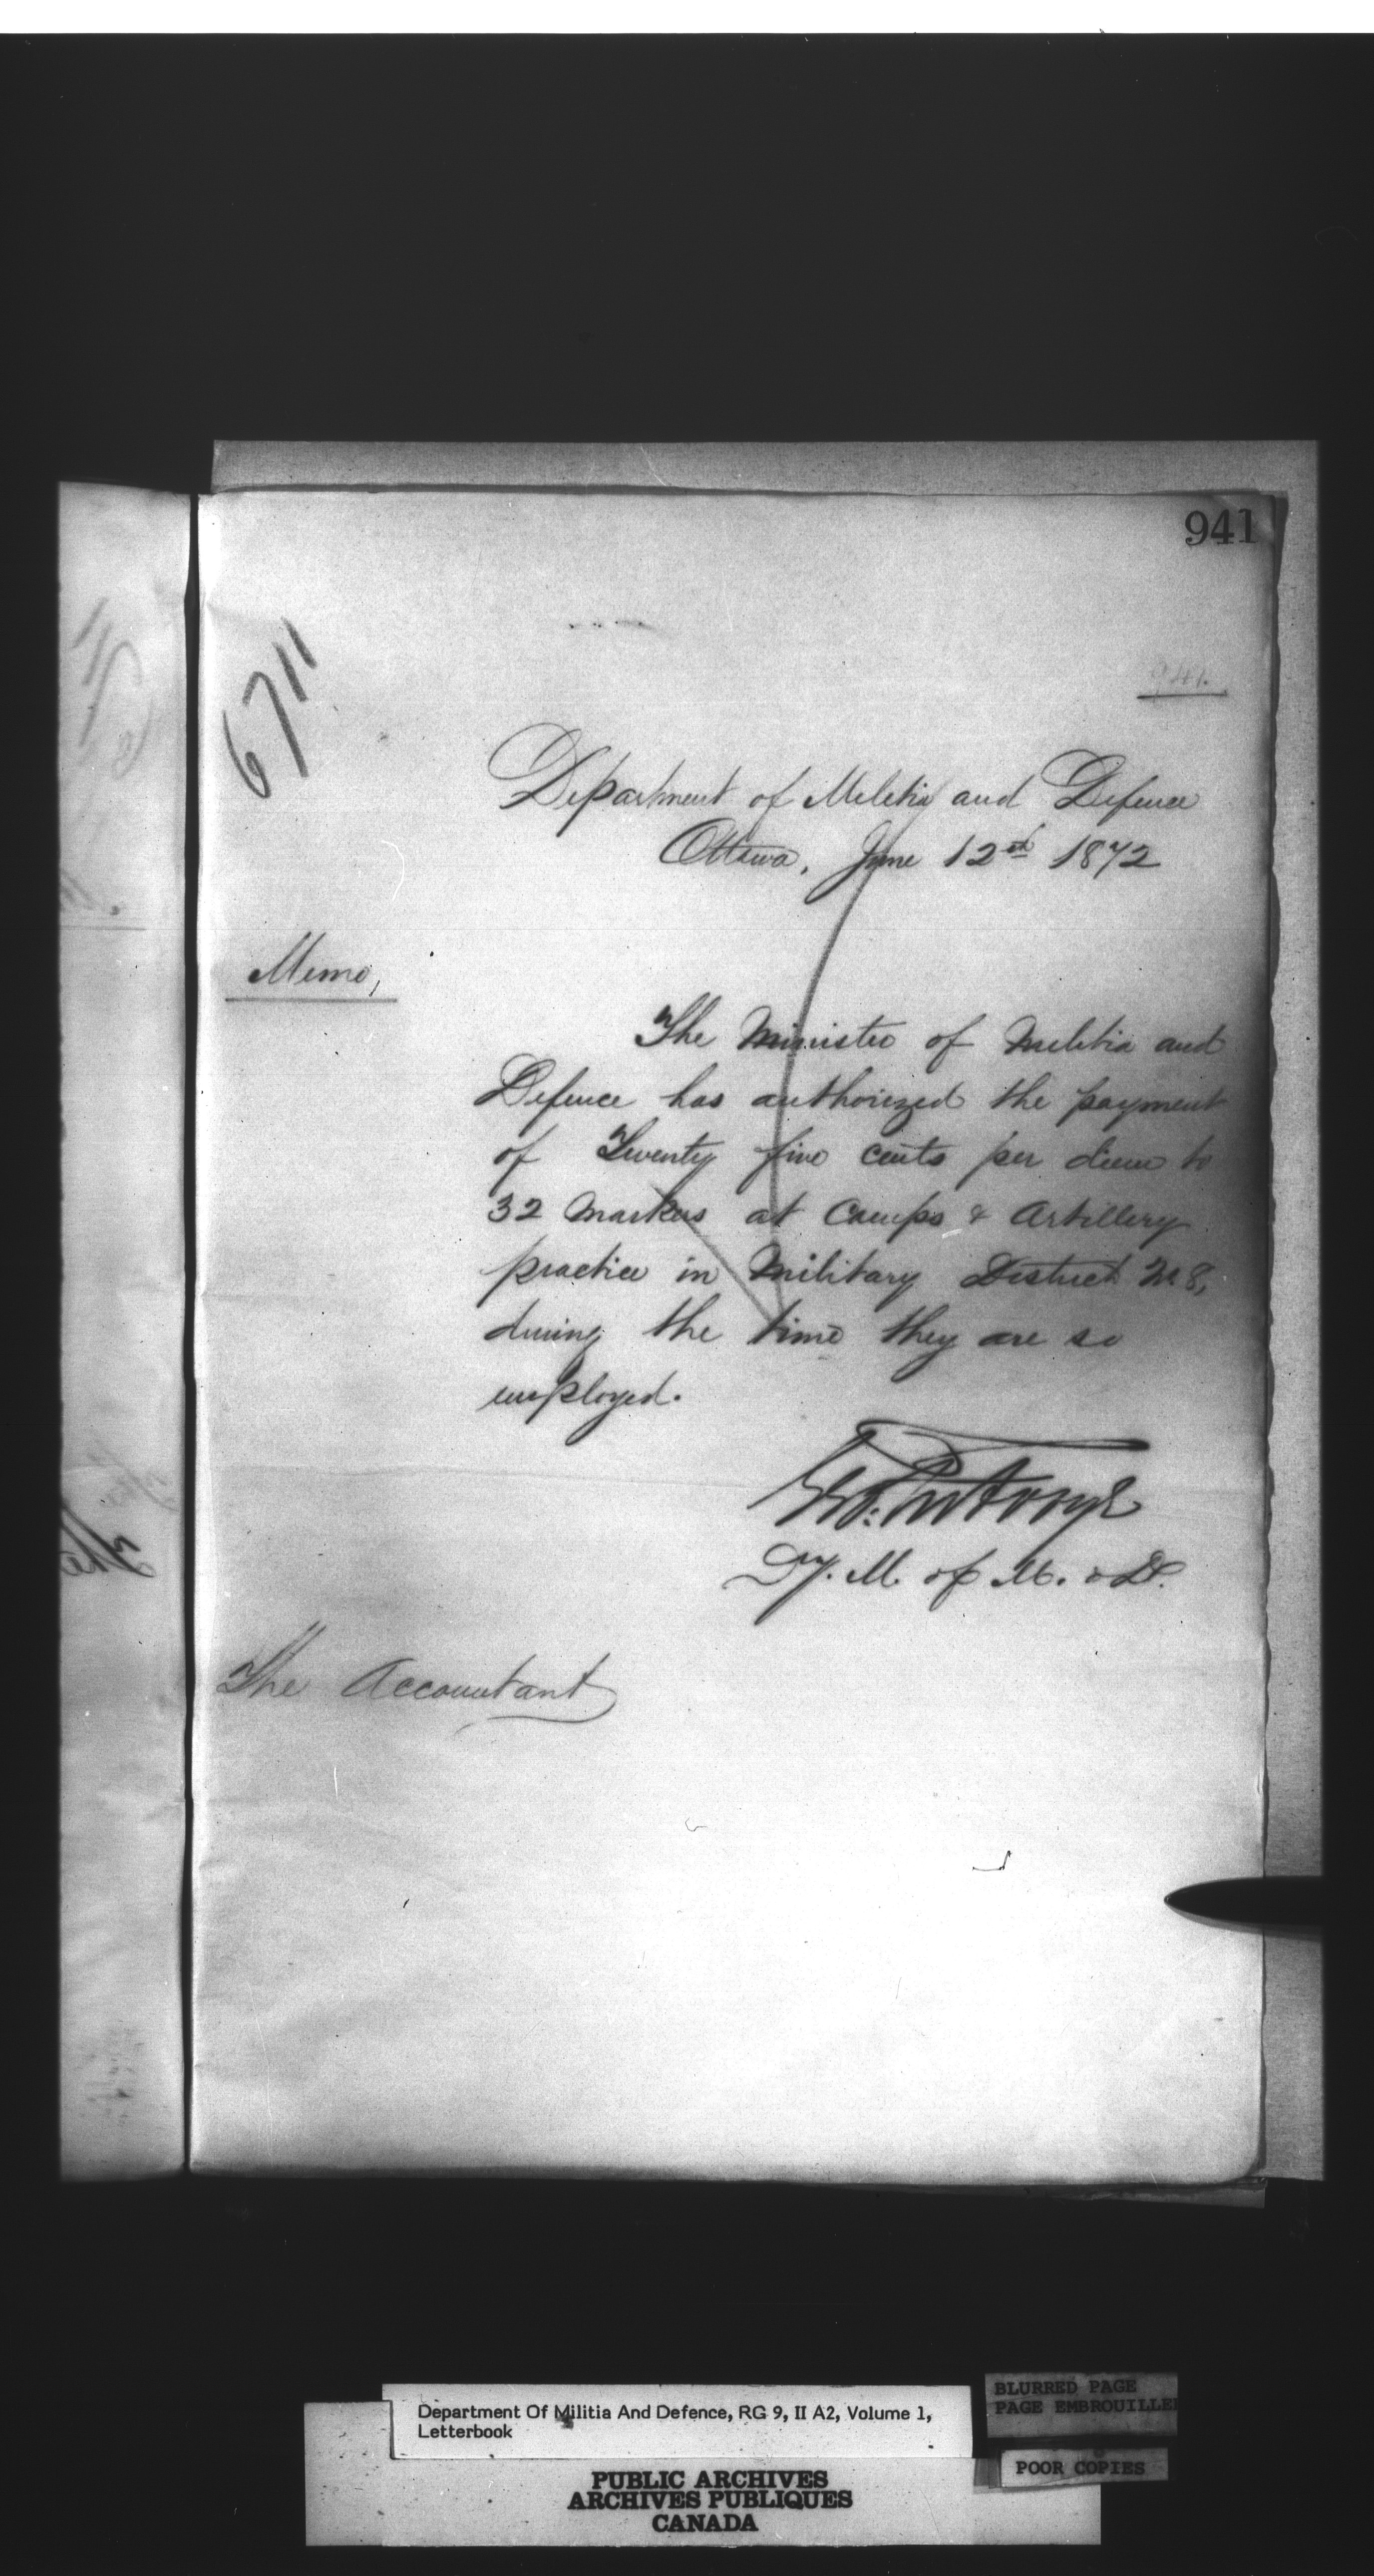 941
6711
941.
Department of Militia and Defence
Ottawa, June 12th 1872
Memo,
The Minister of Militia and
Defence has authorized the payment
of Twenty five cents per diem to
32 Markers at Camps & Artillery
practice in Military District No 8,
during the time they are so
employed.
Geo: Futvoye
Dy. M. of M. & D.
The Accountant
The
Department Of Militia And Defence, RG 9, II A2, Volume 1,
Letterbook
BLURRED PAGE
PAGE EMBROUILLEE
POOR COPIES
PUBLIC ARCHIVES
ARCHIVES PUBLIQUES
CANADA